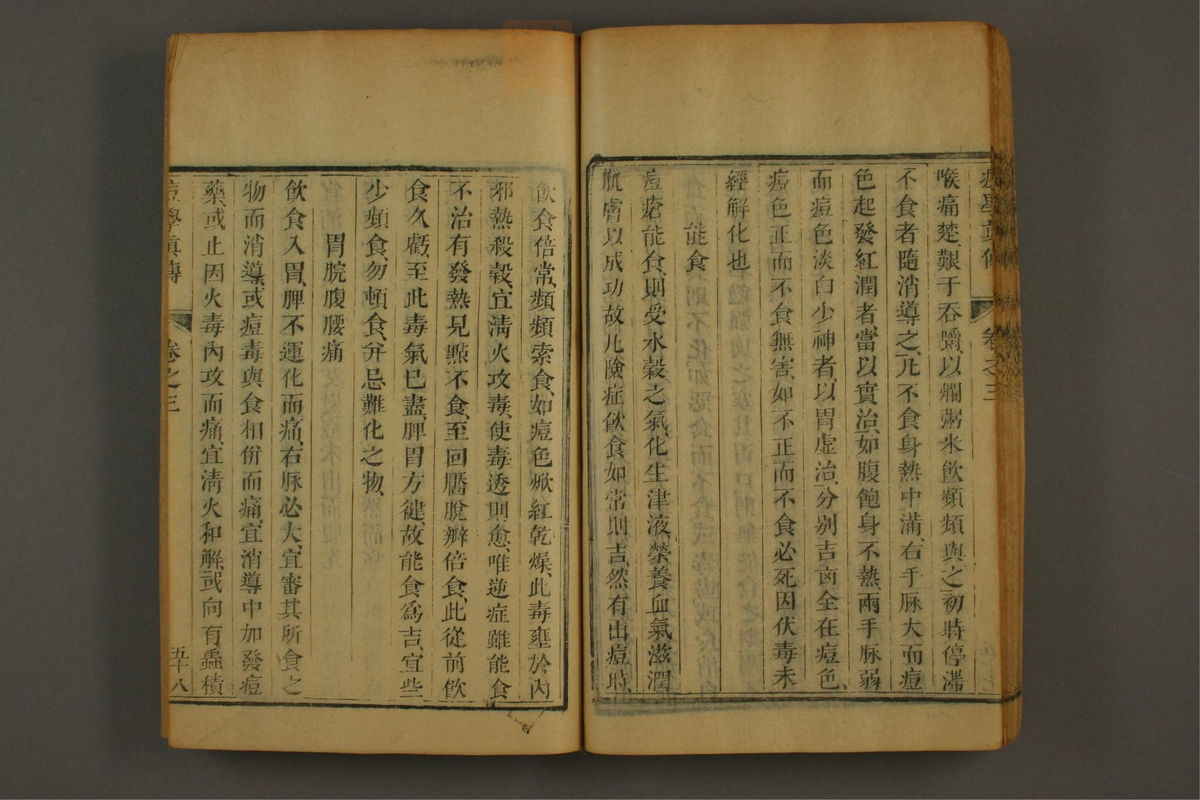 痘學真傳 卷之三
喉痛楚艱于吞嚥以爛粥米飲頻頻與之初時停滯
不食者隨消導之凢不食身熱中滿右手脉大而痘
色起發紅潤者當以實治如腹飽身不熱兩手脉弱
而痘色淡白少神者以胃虛治分別吉凶全在痘色
痘色正而不食無害如不正而不食必死因伏毒未
經解化也
能食
痘瘡能食則受水穀之氣化生津液榮養血氣滋潤
肌膚以成功故凢險症飲食如常則吉然有出痘時
飲食倍常頻頻索食如痘色焮紅乾燥此毒壅於內
邪熱殺穀宜清火攻毒使毒透則愈唯逆症雖能食
不治有發熱見點不食至回靨脫瘢倍食此從前飲
食久虧至此毒氣已盡脾胃方健故能食爲吉宜些
少頻食勿頓食并忌難化之物
胃脘腹腰痛
飲食入胃脾不運化而痛右脉必大宜審其所食之
物而消導或痘毒與食相併而痛宜消導中加發痘
藥或止因火毒內攻而痛宜清火和解或向有蟲積
痘學真傳 卷之三 五十八